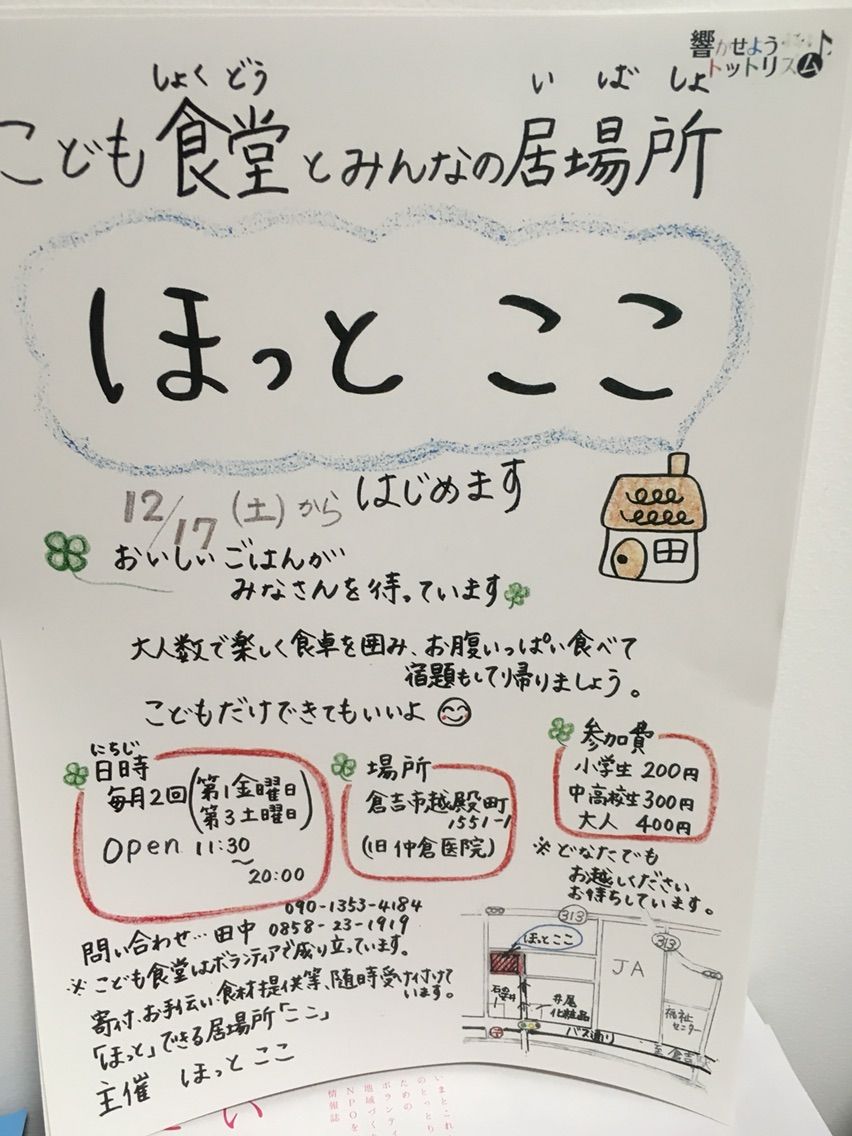 響かせよう
トットリズム
しょくどう いばしょ
こども食堂とみんなの居場所
ほっと ここ
12/17(土)から はじめます
おいしいごはんが
みなさんを待っています
大人数で楽しく食卓を囲み、お腹いっぱい食べて
宿題もして帰りましょう。
こどもだけできてもいいよ
にちじ
日時
毎月2回(第1金曜日
第3土曜日)
open 11:30
~
20:00
場所
倉吉市越殿町
1551-1
(旧仲倉医院)
参加費
小学生 200円
中高校生 300円
大人 400円
※どなたでも
お越しください
お待ちしています。
090-1353-4184
問い合わせ…田中 0858-23-1919
※こども食堂はボランティアで成り立っています。
寄付、お手伝い、食材提供等、随時受け付けて
います。
「ほっと」できる居場所「ここ」
主催 ほっと ここ
313
ほっとここ
313
JA
井尾
化粧品
福祉
センター
バス通り
至倉吉